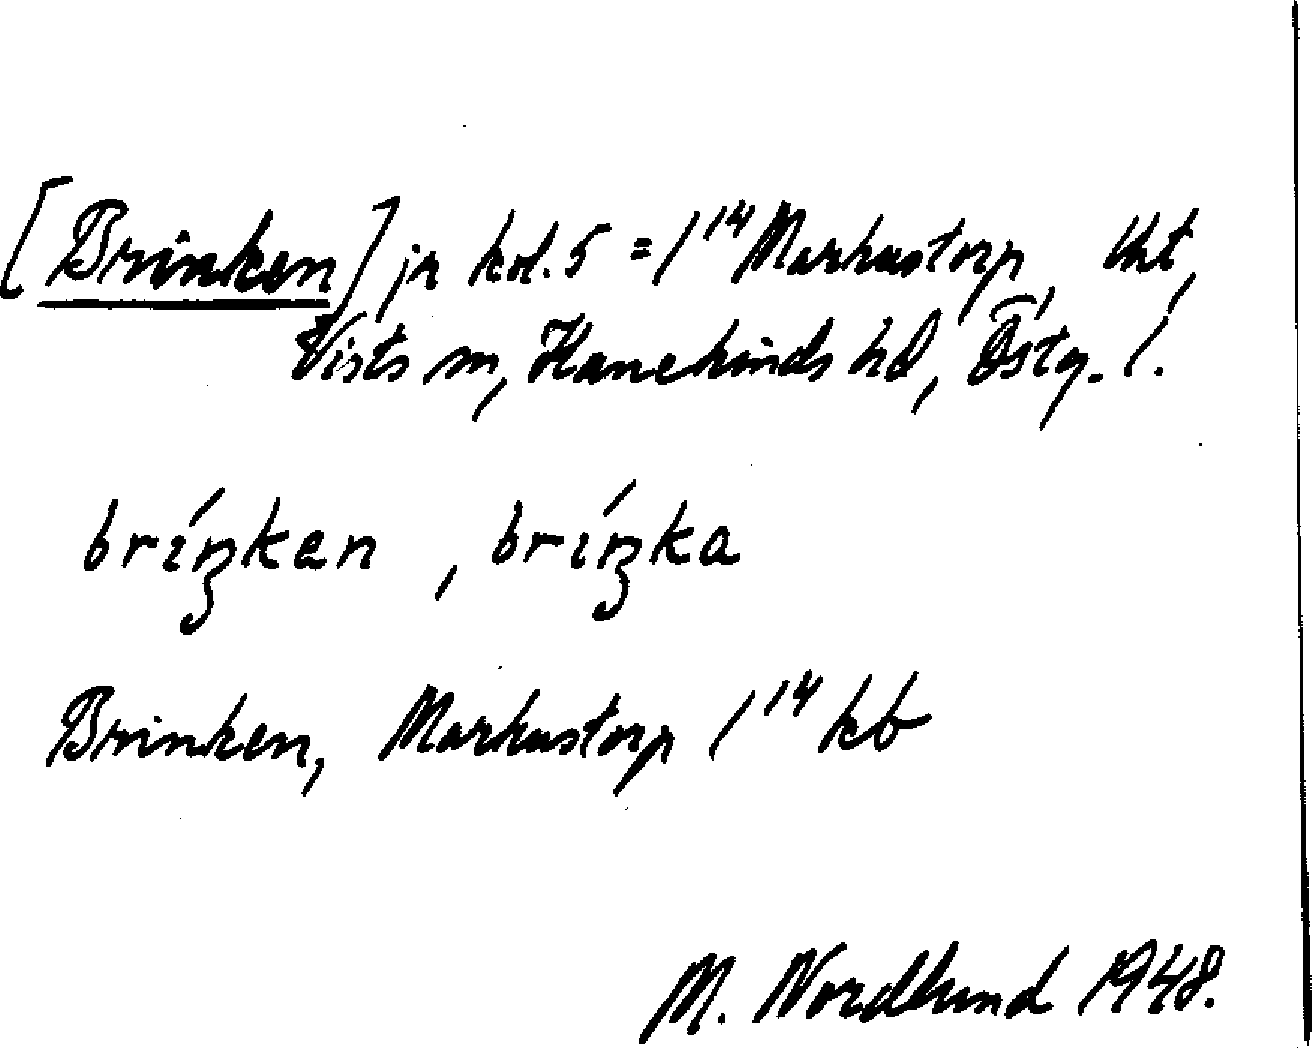 [Brinken] jr kol. 5 = 1¹⁴ Markustorp, Uht,
Vists sn, Hanekinds hd, Östg. l.
bríŋken, bríŋka
Brinken, Markustorp 1¹⁴ kb
M. Nordlund 1948.